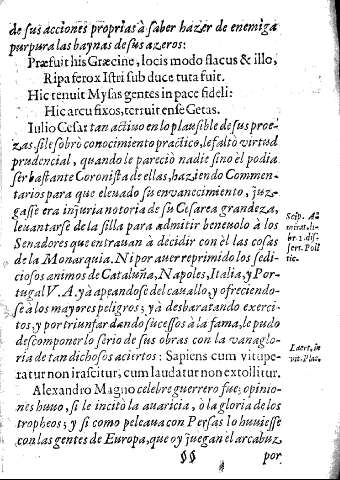 de sus acciones proprias à saber hazer de enemiga
purpura las baynas de sus azeros:
Præfuit his Græcine, locis modo flacus & illo,
Ripa ferox Istri sub duce tuta fuit.
Hic tenuit Mysas gentes in pace fideli:
Hic arcu fixos, terruit ense Getas.
Iulio Cesar tan actiuo en lo plausible de sus proe-
zas, si le sobrò conocimiento practico, le faltò virtud
prudencial, quando le pareciò nadie sino el podia
ser bastante Coronista de ellas, haziendo Commen-
tarios para que eleuado su envanecimiento, juz-
gasse era injuria notoria de su Cesarea grandeza,
leuantarse de la silla para admitir beneuolo à los
Senadores que entrauan à decidir con èl las cosas
de la Monarquia. Ni por auer reprimido los sedi-
ciosos animos de Cataluña, Napoles, Italia, y Por-
tugal V. A. yà apeandose del cauallo, y ofreciendo-
se à los mayores peligros; y à desbaratando exerci-
tos, y por triunfar dando sucessos à la fama, le pudo
descomponer lo serio de sus obras con la vanaglo-
ria de tan dichosos aciertos: Sapiens cum vitupe-
ratur non irascitur, cum laudatur non extollitur.
Alexandro Magno celebre guerrero fue; opinio-
nes huuo, si le incitò la auaricia, ò la gloria de los
tropheos; y si como peleaua con Persas lo huuiesse
con las gentes de Europa, que oy juegan el arcabuz
§§ por
Scip. A-
mirat. li-
br. 2. dis-
sert. Poli-
tic.
Laert. in
vit. Plat.